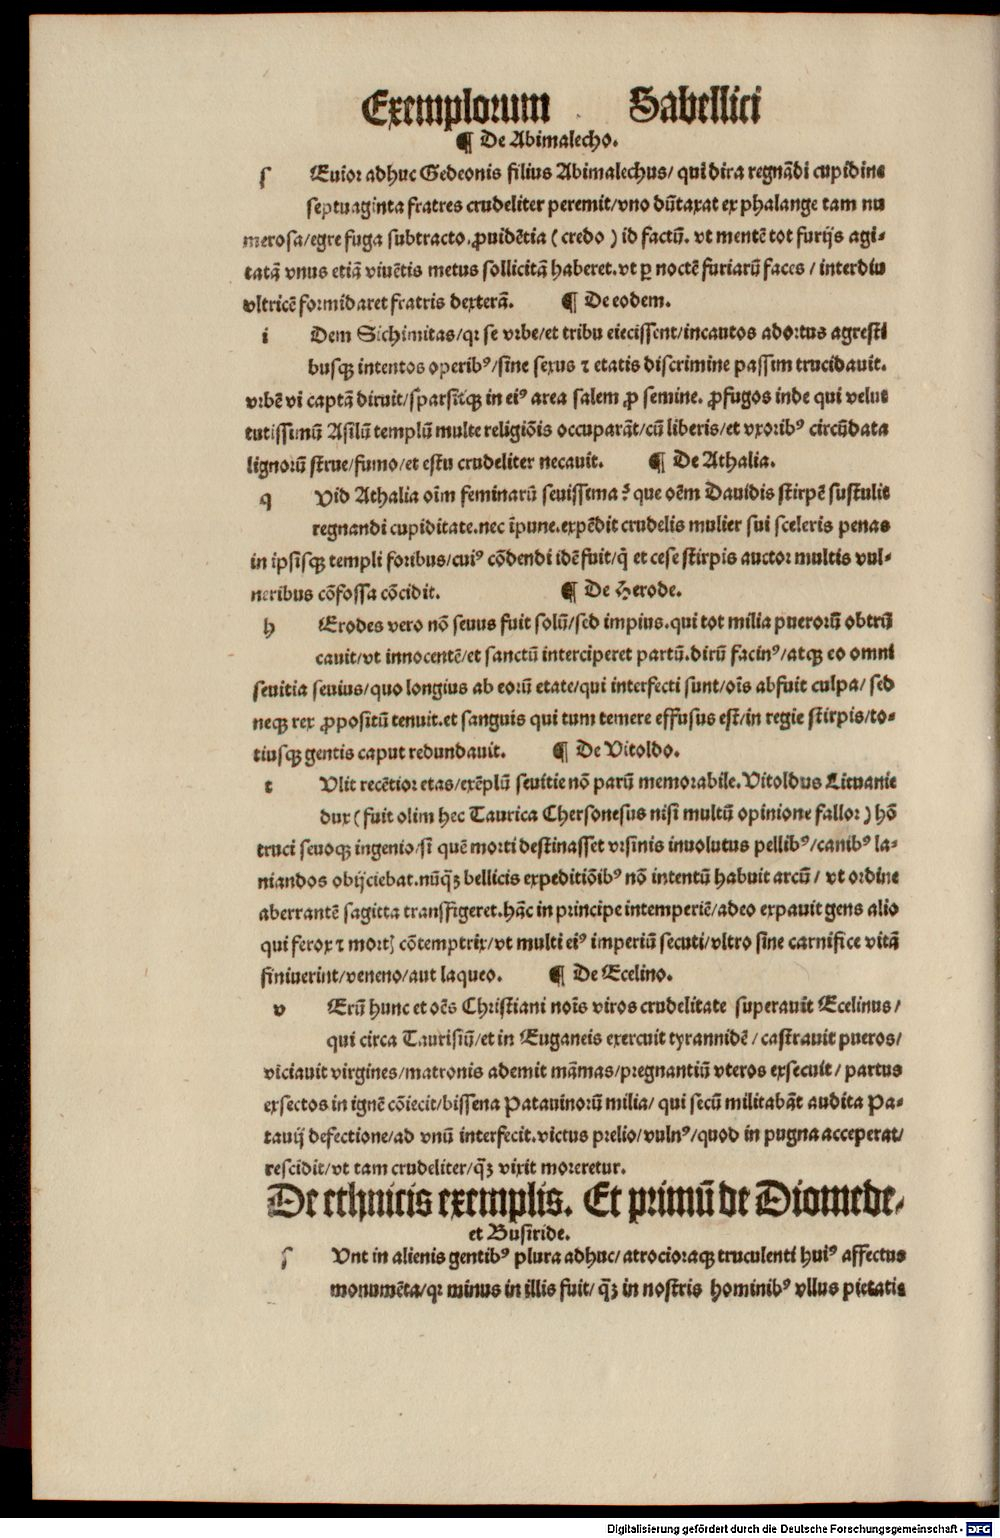 Exemplorum Sabellici
¶ De Abimalecho.
ſ Euior adhuc Gedeonis filius Abimalechus/ qui dira regnãdi cupidine
septuaginta fratres crudeliter peremit/vno dũtaxat ex phalange tam nu
merosa/egre fuga subtracto.ꝓuidẽtia ( credo ) id factũ. vt mentẽ tot furijs agi-
tatã vnus etiã viuẽtis metus sollicitã haberet.vt ꝑ noctẽ furiarũ faces / interdiu
vltricẽ formidaret fratris dexterã. ¶ De eodem.
i Dem Sichimitas/qꝛ se vrbe/et tribu eiecissent/incautos adortus agresti
busqꝫ intentos operibꝰ/sine sexus ⁊ etatis discrimine passim trucidauit.
vrbẽ vi captã diruit/sparsitqꝫ in eiꝰ area salem ꝓ semine. ꝓfugos inde qui velut
tutissimũ Asilũ templũ multe religiõis occuparãt/cũ liberis/et vxoribꝰ circũdata
lignorũ strue/fumo/et estu crudeliter necauit. ¶ De Athalia.
q Vid Athalia oĩm feminarũ seuissima ? que oẽm Dauidis stirpẽ sustulit
regnandi cupiditate.nec ĩpune.expẽdit crudelis mulier sui sceleris penas
in ipsisqꝫ templi foribus/cuiꝰ cõdendi idẽ fuit/q̃ et cese stirpis auctor multis vul-
neribus cõfossa cõcidit. ¶ De Herode.
h Erodes vero nõ seuus fuit solũ/sed impius.qui tot milia puerorũ obtrũ
cauit/vt innocentẽ/et sanctũ interciperet partũ.dirũ facinꝰ/atqꝫ eo omni
seuitia seuius/quo longius ab eorũ etate/qui interfecti sunt/oĩs abfuit culpa/ sed
neqꝫ rex ꝓpositũ tenuit.et sanguis qui tum temere effusus est/in regie stirpis/to-
tiusqꝫ gentis caput redundauit. ¶ De Vitoldo.
t Vlit recẽtior etas/exẽplũ seuitie nõ parũ memorabile.Vitoldus Lituanie
dux ( fuit olim hec Taurica Chersonesus nisi multũ opinione fallor ) hõ
truci seuoqꝫ ingenio/si quẽ morti destinasset vrsinis inuolutus pellibꝰ/canibꝰ la-
niandos obijciebat.nũq̃ꝫ bellicis expeditiõibꝰ nõ intentũ habuit arcũ/ vt ordine
aberrantẽ sagitta transfigeret.hãc in principe intemperiẽ/adeo expauit gens alio
qui ferox ⁊ mortꝭ cõtemptrix/vt multi eiꝰ imperiũ secuti/vltro sine carnifice vitã
finiuerint/veneno/aut laqueo. ¶ De Ecelino.
v Erũ hunc et oẽs Christiani noĩs viros crudelitate superauit Ecelinus/
qui circa Taurisiũ/et in Euganeis exercuit tyrannidẽ / castrauit pueros/
viciauit virgines/matronis ademit mãmas/pregnantiũ vteros exsecuit/ partus
exsectos in ignẽ cõiecit/bissena Patauinorũ milia/ qui secũ militabãt audita Pa-
tauij defectione/ad vnũ interfecit.victus prelio/vulnꝰ/quod in pugna acceperat/
rescidit/vt tam crudeliter/q̃ꝫ vixit moreretur.
De ethnicis exemplis. Et primũ de Diomede/
et Busiride.
ſ Vnt in alienis gentibꝰ plura adhuc/ atrocioraqꝫ truculenti huiꝰ affectus
monumẽta/qꝛ minus in illis fuit/ q̃ꝫ in nostris hominibꝰ vllus pietatis
Digitalisierung gefördert durch die Deutsche Forschungsgemeinschaft - DFG